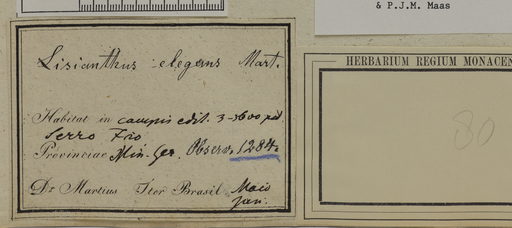 & P.J.M. Maas
Lisianthus elegans Mart.
HERBARIUM REGIUM MONACEN
Habitat in campis edit. 3-3600 ped.
Serro Frio
Provinciae Min. Ger. Observ. 1284.
Dr Martius Iter Brasil. Maio
Jun.
80